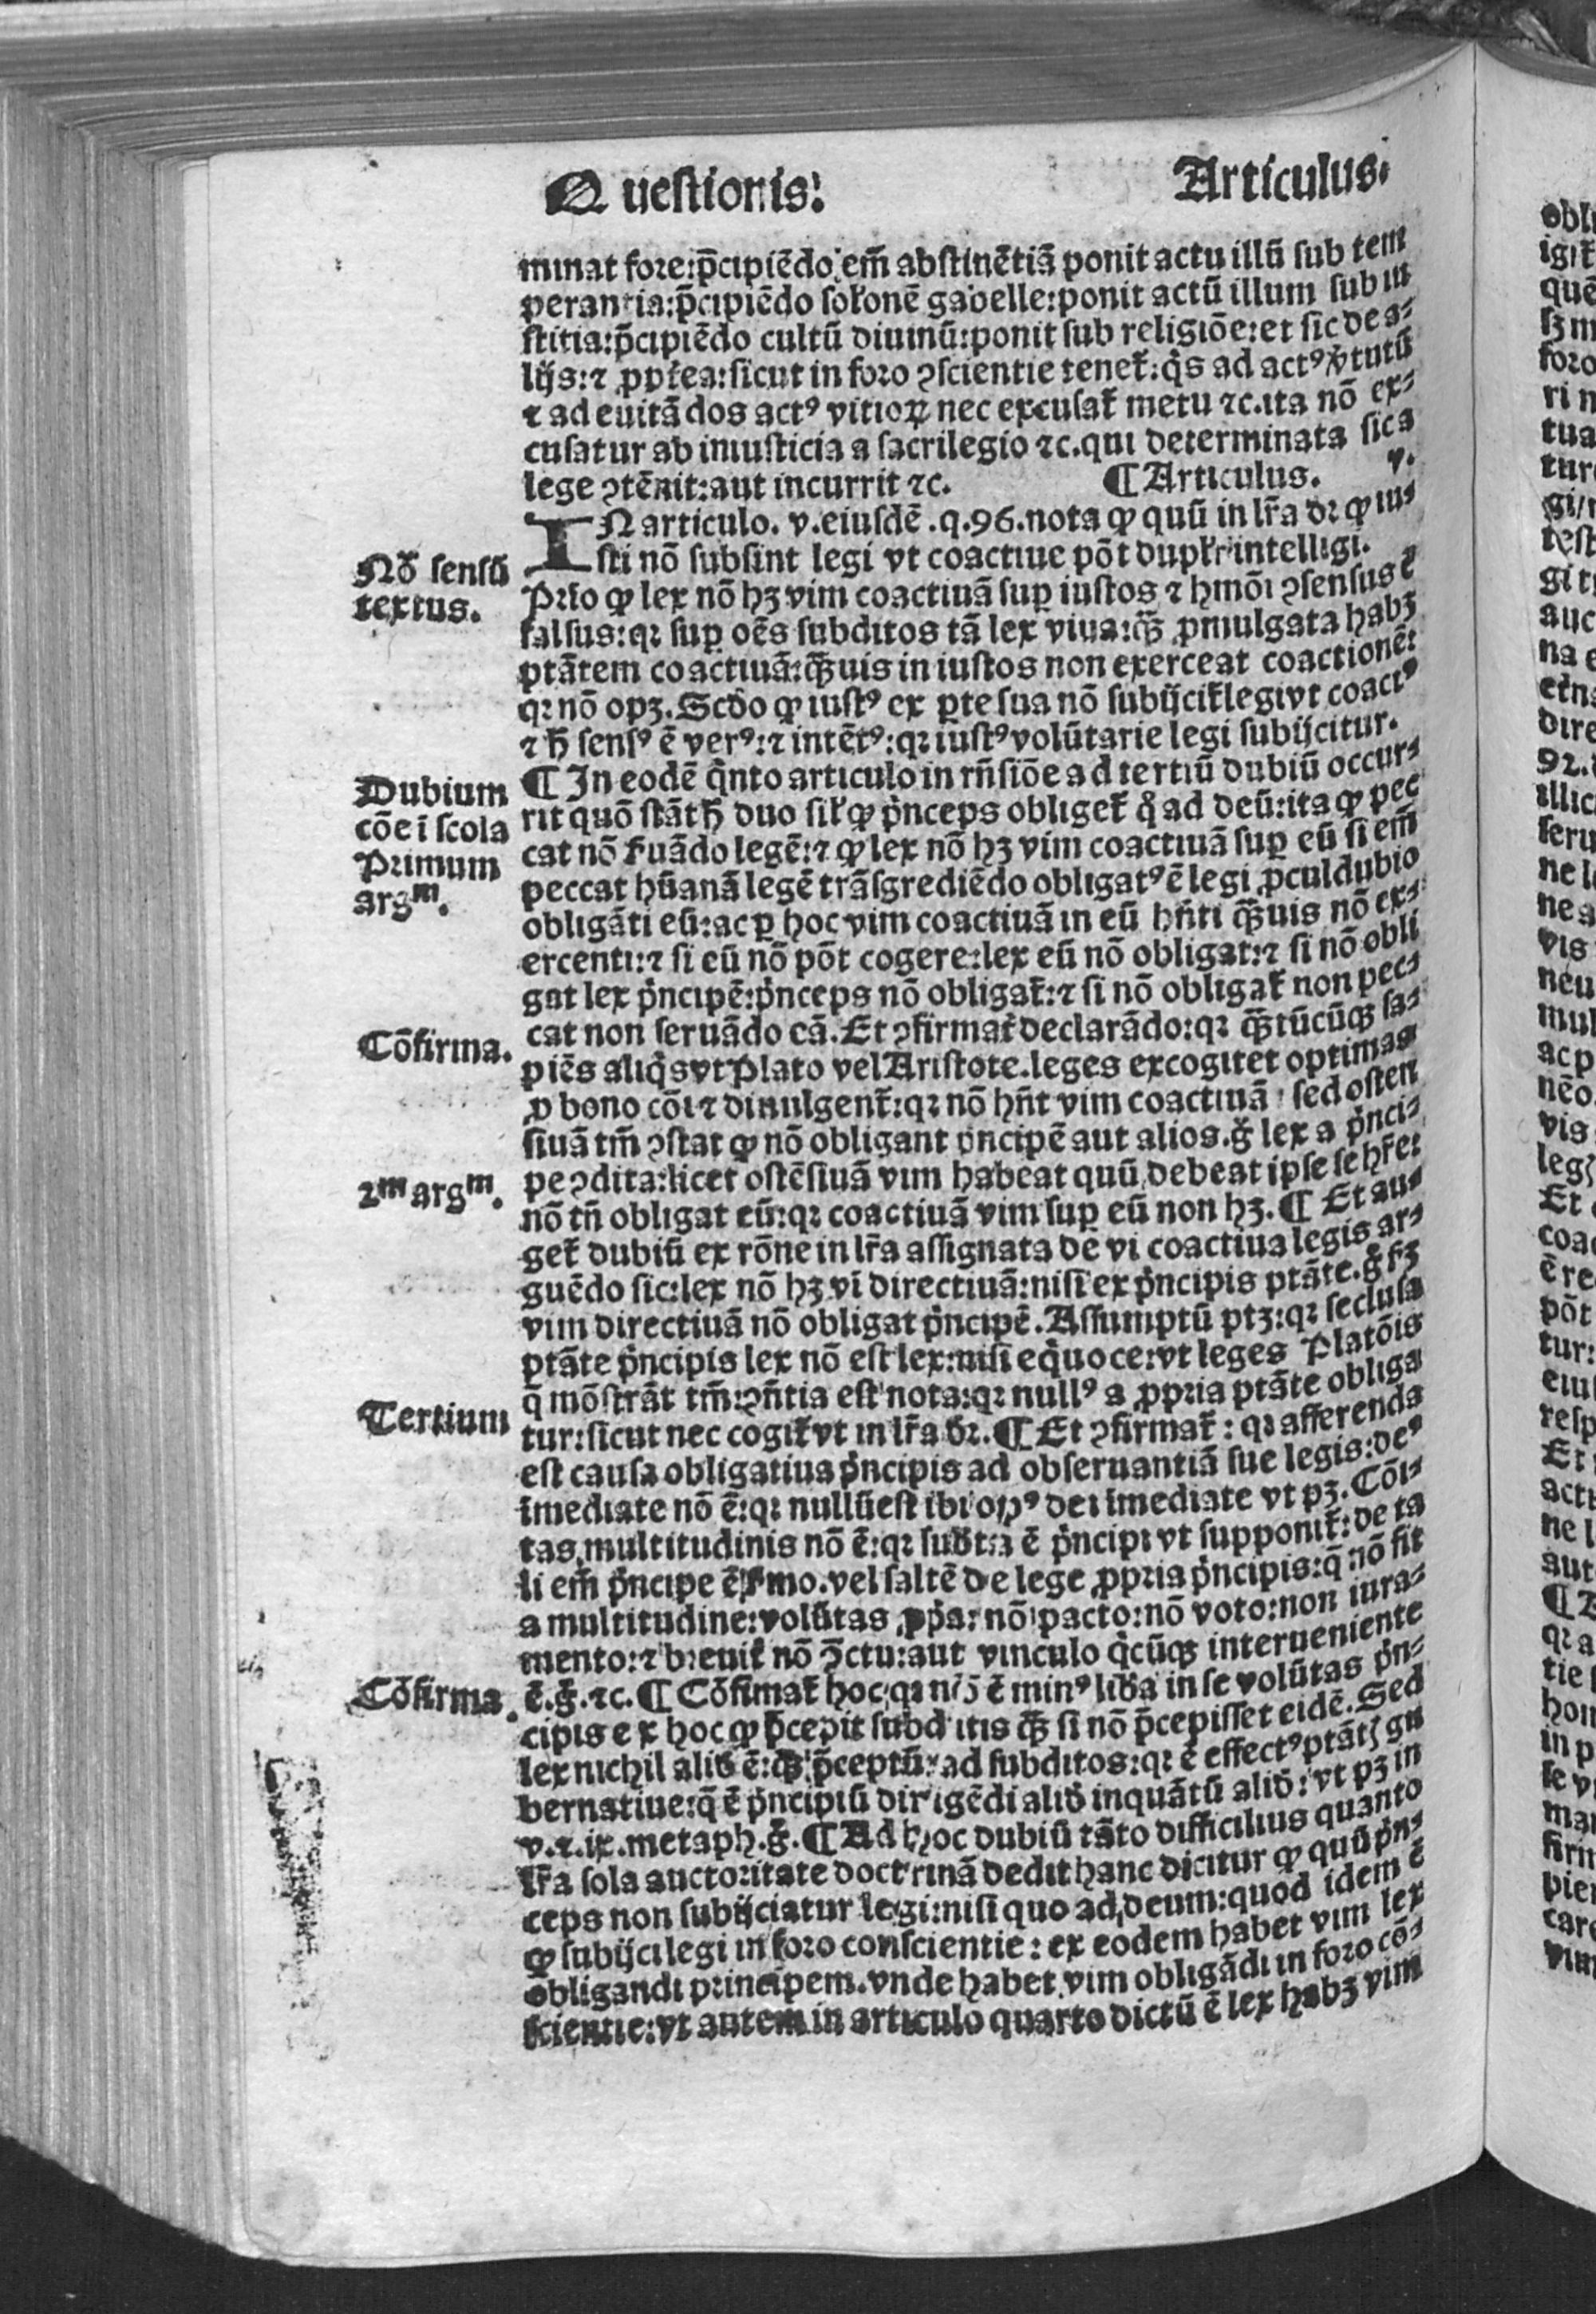 Questionis!
Articulus.
minat fore:p̄cipiēdo em̄ abstinētiā ponit actu illū sub tem
perantia:p̄cipiēdo solonē gabelle:ponit actū illum sub iu
stitia:p̄cipiēdo cultū diuinū:ponit sub religiōe:et sic de a⸗
lijs:⁊ ꝓpt̄ea:sicut in foro ꝯscientie tenet̄:q̇s ad actꝰ v̓tutū
⁊ ad euitādos actꝰ vitioꝝ nec excusat̄ metu ⁊c.ita nō ex⸗
cusatur ab iniusticia a sacrilegio ⁊c.qui determinata sic a
lege ꝯtēnit:aut incurrit ⁊c. ¶Articulus. v.
IN articulo. v.eiusdē .q.96.nota ꝙ quū in lr̄a dꝛ ꝙ iu⸗
sti nō subsint legi vt coactiue pōt duplr̄ intelligi.
Nō sensū
textus.
Prīo ꝙ lex nō hꝫ vim coactiuā suꝑ iustos ⁊ hmōi ꝯsensus ē
falsus:qꝛ suꝑ oēs subditos tā lex viua:qꝫ̄ ꝓmulgata habꝫ
ptātem coactiuā:qꝫ̄uis in iustos non exerceat coactionē:
qꝛ nō opꝫ.Scd̄o ꝙ iustꝰ ex ꝑte sua nō subijcit̄ legi vt coactꝰ
⁊ h̄ sensꝰ ē verꝰ:⁊ intētꝰ:qꝛ iustꝰ volūtarie legi subijcitur.
Dubium
cōe ī scola
Primum
argᵐ.
¶In eodē q̇nto articulo in rn̄siōe ad tertiū dubiū occur⸗
rit quō stāt h̄ duo sil̄ ꝙ p̓nceps obliget̄ q̊ ad deū:ita ꝙ pec
cat nō s̓uādo legē:⁊ ꝙ lex nō hꝫ vim coactiuā suꝑ eū si em̄
peccat hūanā legē trāsgrediēdo obligatꝰ ē legi ꝓculdubio
obligāti eū:ac ꝑ hoc vim coactiuā in eū hn̄ti qꝫ̄uis nō ex⸗
ercenti:⁊ si eū nō pōt cogere:lex eū nō obligat:⁊ si nō obli
gat lex p̓ncipē:p̓nceps nō obligat̄:⁊ si nō obligat̄ non pec⸗
Cōfirma.
cat non seruādo eā.Et ꝯfirmat̄ declarādo:qꝛ qꝫ̄tūcūqꝫ sa⸗
piēs aliq̇s vt Plato vel Aristote.leges excogitet optimas
ꝓ bono cōi ⁊ diuulgent̄:qꝛ nō hn̄t vim coactiuā sed osten
siuā tm̄ ꝯstat ꝙ nō obligant p̓ncipē aut alios.g̊ lex a p̓nci⸗
2ᵐ argᵐ.
pe ꝯdita:licet ostēsiuā vim habeat quū debeat ipse se hr̄e:
nō tn̄ obligat eū:qꝛ coactiuā vim suꝑ eū non hꝫ.¶ Et au⸗
get̄ dubiū ex rōne in lr̄a assignata de vi coactiua legis ar⸗
guēdo sic:lex nō hꝫ vī directiuā:nisi ex p̓ncipis ptāte.g̊ sꝫ
vim directiuā nō obligat p̓ncipē.Assumptū ptꝫ:qꝛ seclusa
ptāte p̓ncipis lex nō est lex:nisi eq̇uoce:vt leges Platōis
q̄ mōstrāt tm̄:ꝯn̄tia est nota:qꝛ nullꝰ a ꝓpria ptāte obliga
Tertium
tur:sicut nec cogit̄ vt in lr̄a dꝛ.¶Et ꝯfirmat̄: qꝛ afferenda
est causa obligatiua p̓ncipis ad obseruantiā sue legis:deꝰ
īmediate nō ē:qꝛ nullū est ibi opꝰ dei īmediate vt pꝫ.Cōi⸗
tas multitudinis nō ē:qꝛ subdita ē p̓ncipi vt supponit̄:de ta
li em̄ p̓ncipe ē s̓mo.vel saltē de lege ꝓpria p̓ncipis:q̄ nō fit
a multitudine:volūtas ꝓp̓a: nō pacto:nō voto:non iura⸗
mento:⁊ breuit̄ nō ꝯ̄ctu:aut vinculo q̇cūqꝫ interueniente
Cōfirma.
ē.g̊.⁊c.¶ Cōfirmat̄ hoc:qꝛ nō ē minꝰ lib̄a in se volūtas p̓n⸗
cipis ex hoc ꝙ p̄cepit subditis qꝫ̄ si nō p̄cepisset eidē.Sed
lex nichil aliud ē:qꝫ̄ p̄ceptū ad subditos:qꝛ ē effectꝰ ptātꝭ gu
bernatiue:q̄ ē p̓ncipiū dirigēdi aliud inquātū aliud:vt pꝫ in
v.⁊.ix.metaph.g̊.¶Ad hoc dubiū tāto difficilius quanto
lr̄a sola auctoritate doctrinā dedit hanc dicitur ꝙ quū p̓n⸗
ceps non subijciatur legi:nisi quo ad deum:quod idem ē
ꝙ subijci legi in foro conscientie: ex eodem habet vim lex
obligandi principem.vnde habet vim obligādi in foro cō⸗
scientie:vt autem in articulo quarto dictū ē lex habꝫ vim